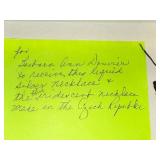 for
Barbara Ann Donovan
to receive this liquid
silver necklace &
the iridescent necklace
made in the Czech Republic